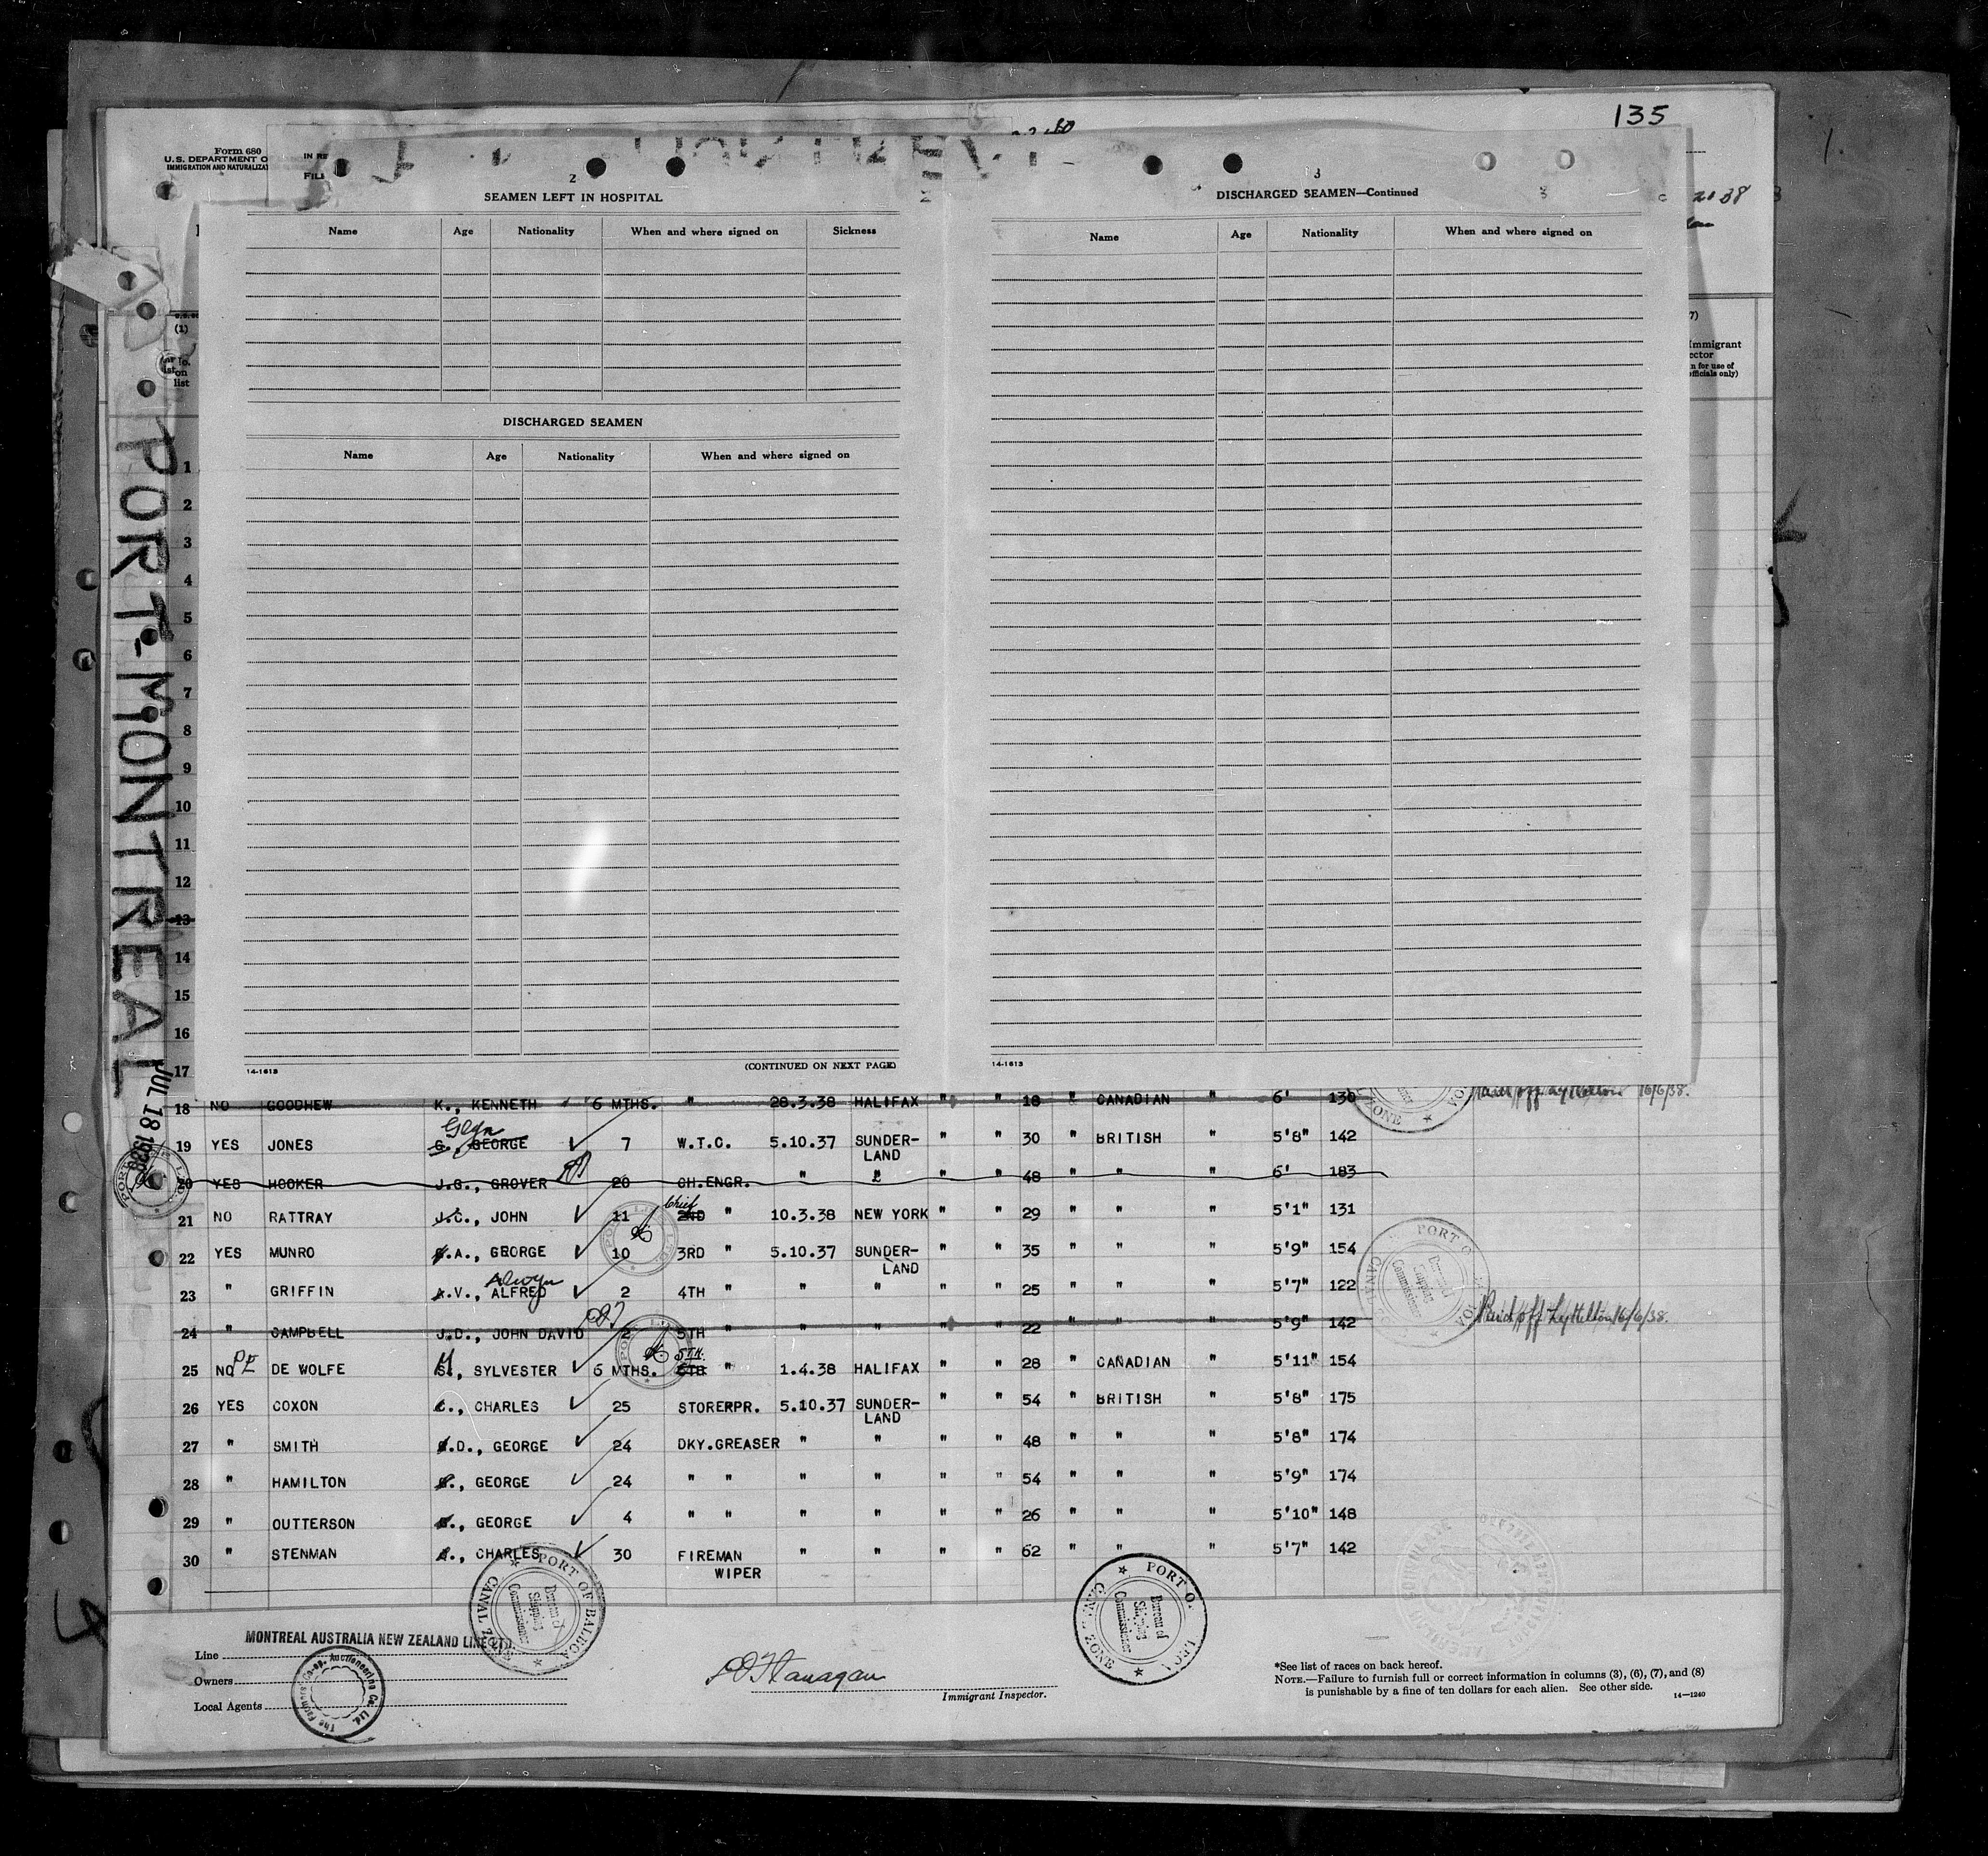 135
Form 680
U.S. DEPARTMENT O
IMMIGRATION AND NATURALIZAT
IN RE
FIL
2
SEAMEN LEFT IN HOSPITAL
Name Age Nationality When and where signed on Sickness
DISCHARGED SEAMEN
Name Age Nationality When and where signed on
14-1613 (CONTINUED ON NEXT PAGE)
3
DISCHARGED SEAMEN—Continued
Name Age Nationality When and where signed on
14-1613
(1)
list
7)
Immigrant
ector
n for use of
officials only)
PORT-MONTREAL
JUL 18 1938
1
2
3
4
5
6
7
8
9
10
11
12
13
14
15
16
17
18 NO GOODHEW K., KENNETH 6 MTHS. " 28.3.38 HALIFAX " " 18 " CANADIAN " 6' 130 Paid off Lyttelton 16/6/38.
19 YES JONES G., GEORGE Glyn 7 W.T.C. 5.10.37 SUNDER-LAND " " 30 " BRITISH " 5'8" 142
20 YES HOOKER J.G., GROVER 20 CH.ENGR. " " " " 48 " " " 6' 183
21 NO RATTRAY J.C., JOHN 11 2ND Chief " 10.3.38 NEW YORK " " 29 " " " 5'1" 131
22 YES MUNRO G.A., GEORGE 10 3RD " 5.10.37 SUNDER-LAND " " 35 " " " 5'9" 154
23 " GRIFFIN A.V., ALFRED Alwyn 2 4TH " " " " " 25 " " " 5'7" 122
24 " CAMPBELL J.D., JOHN DAVID 2 5TH " " " " " 22 " " " 5'9" 142 Paid off Lyttelton 16/6/38.
25 NO DE WOLFE S., SYLVESTER 6 MTHS. 5TH. " 1.4.38 HALIFAX " " 28 " CANADIAN " 5'11" 154
26 YES COXON C., CHARLES 25 STORERPR. 5.10.37 SUNDER-LAND " " 54 " BRITISH " 5'8" 175
27 " SMITH G.D., GEORGE 24 DKY.GREASER " " " " 48 " " " 5'8" 174
28 " HAMILTON G., GEORGE 24 " " " " " " 54 " " " 5'9" 174
29 " OUTTERSON G., GEORGE 4 " " " " " " 26 " " " 5'10" 148
30 " STENMAN C., CHARLES 30 FIREMAN WIPER " " " " 62 " " " 5'7" 142
PORT OF BALBOA CANAL ZONE
Bureau of Shipping Commissioner
Line MONTREAL AUSTRALIA NEW ZEALAND LINE LTD.
Owners
Local Agents
Immigrant Inspector.
*See list of races on back hereof.
NOTE.—Failure to furnish full or correct information in columns (3), (6), (7), and (8)
is punishable by a fine of ten dollars for each alien. See other side.
14—1240